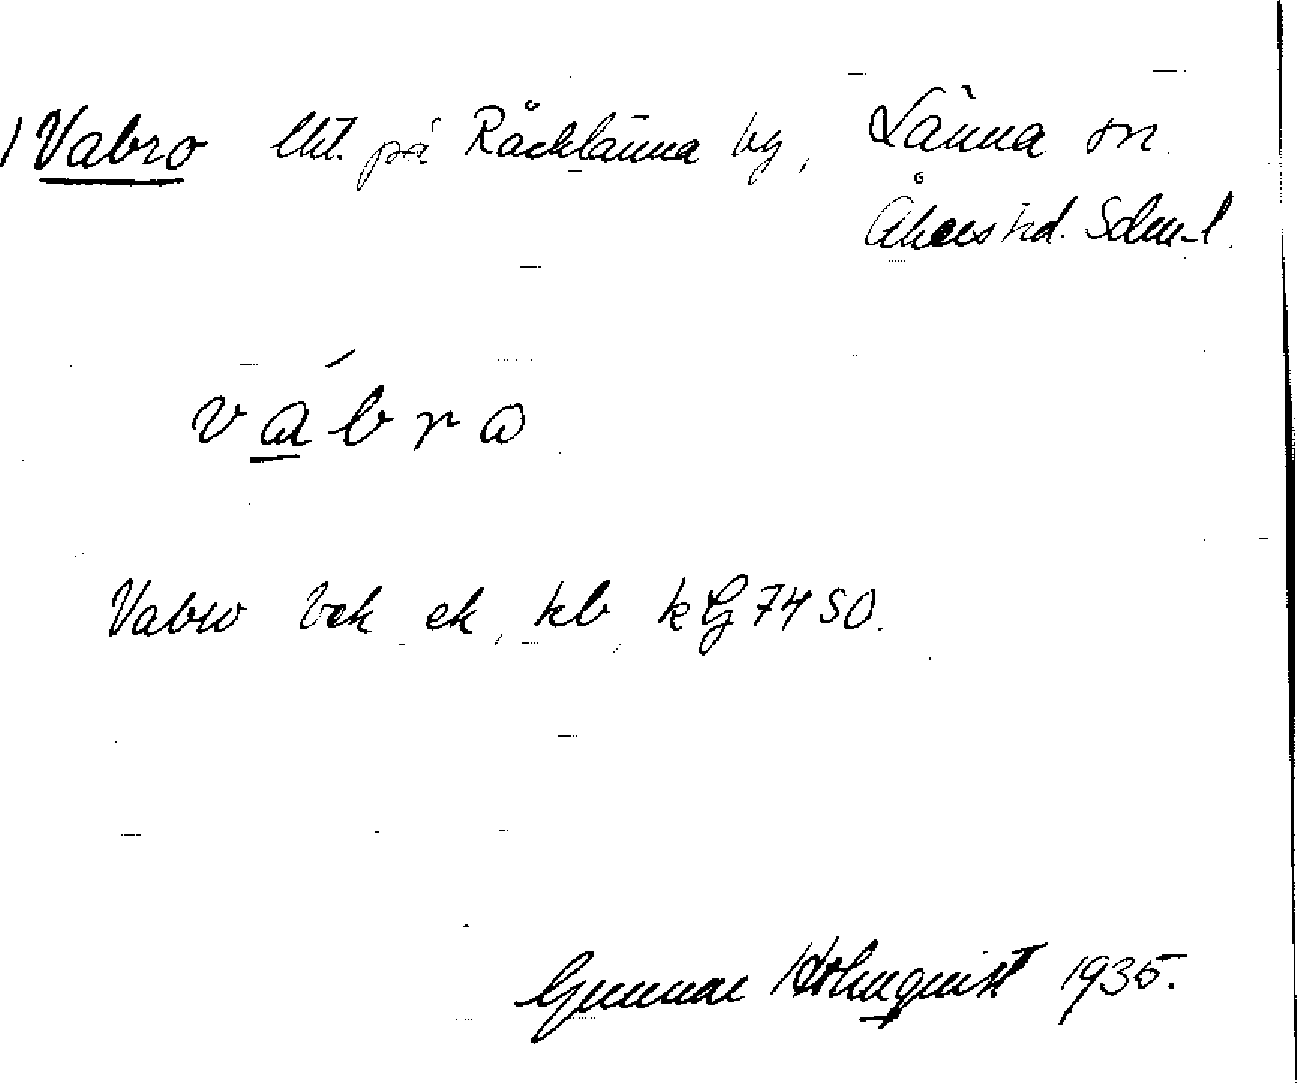 Vabro lht. på Räcklänna by, Länna sn.
Åkers hd. Sdm-l.
vábro
Vabro bek ek, kb, kLg 74 SO.
Gunnar Holmquist 1935.